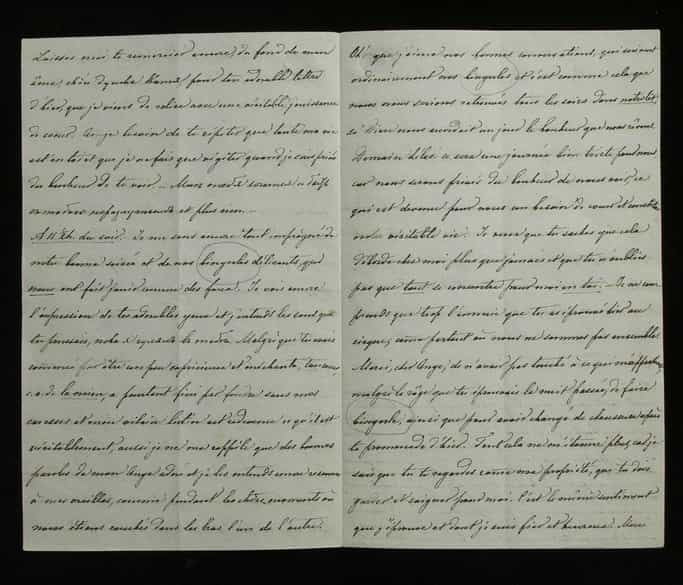 Laisse moi te remercier encore, du fond de mon
âme, chère Dyncka, pour ton adorable lettre
d'hier, que je viens de relire avec une véritable jouissance
de coeur. Ai-je besoin de te répéter que toute ma vie
est en toi et que je ne fais que végéter quand je suis privé
du bonheur de te voir. —
et plus rien. —
A 11 h. du soir. Je me sens encore tout imprégné de
notre bonne soirée et de nos bingerles délirants, qui
nous ont fait jouir comme des fous. Je vois encore
l'expression de tes adorables yeux et j'entends les sons que
tu poussais, Malgré que tu aies
commencé par être un peu
c. a. d. la mienne, a pourtant fini par fondre sous mes
caresses et mon vilain lutin est redevenu ce qu'il est
véritablement, aussi je ne me rappelle que des bonnes
paroles de mon Ange adoré et je les entends encore résonner
à mes oreilles, comme pendant les chers moments où
nous étions couchés dans les bras l'un de l'autre.
Oh! que j'aime nos bonnes conversations, qui suivent
ordinairement nos bingerles et c'est comme cela que
nous nous serions retrouvés tous les soirs dans notre lit
si Dieu nous accordait un jour le bonheur que nous rêvons.
Demain hélas, ce sera une journée bien triste pour nous
car nous serons privés du bonheur de nous voir, ce
qui est devenu pour nous un besoin de coeur et constitue
notre véritable vie. Je veux que tu saches que cela
déborde chez moi plus que jamais et que tu n'oublies
pas que tout se concentre pour moi en toi. — Je ne com-
prends que trop l'ennui que tu as éprouvé hier au
cirque, comme partout où nous ne sommes pas ensemble.
Merci, cher Ange, de n'avoir pas touché à ce qui m'appartient,
malgré la rage que tu éprouvais la nuit passée, de faire
bingerle, ainsi que pour avoir changé de chaussure après
ta promenade d'hier. Tout cela ne m'étonne plus, car je
sais que tu te regardes comme ma propriété, que tu dois
garder et soigner pour moi. C'est le même sentiment
que j'éprouve et dont je suis fier et heureux. Mais